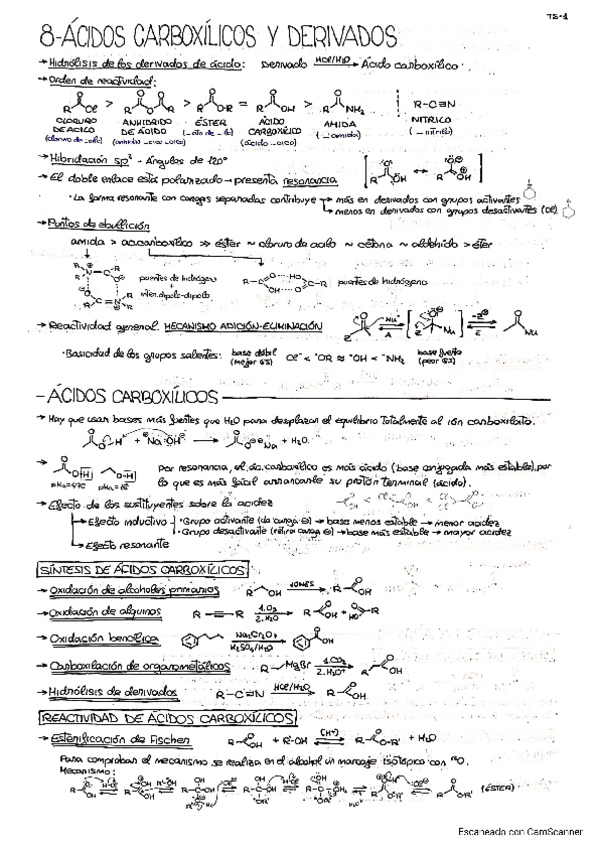 T8-1
8-ÁCIDOS CARBOXÍLICOS Y DERIVADOS
→ Hidrólisis de los derivados de ácido: Derivado HCl/H₂O → Ácido carboxílico
→ Orden de reactividad:
R Cl > R O R > R O-R = R OH > R NH₂ R-C≡N
CLORURO DE ACILO ANHIDRIDO DE ÁCIDO ÉSTER ÁCIDO CARBOXÍLICO AMIDA NITRILO
(cloruro de -ilo) (-ato de -ilo) (ácido -oico) (-amida) (-nitrilo)
→ Hibridación sp² - Ángulos de 120°
→ El doble enlace está polarizado → presenta resonancia
· La forma resonante con cargas separadas contribuye → más en derivados con grupos activantes
→ menos en derivados con grupos desactivantes (Cl)
→ Puntos de ebullición
amida > ac.carboxílico >> éster ~ cloruro de acilo ~ cetona ~ aldehído > éter
puentes de hidrógeno + inter.dipolo-dipolo
puentes de hidrógeno
→ Reactividad general MECANISMO ADICIÓN-ELIMINACIÓN
· Basicidad de los grupos salientes: base débil (mejor GS) Cl⁻ < ⁻OR ≈ ⁻OH < ⁻NH₂ base fuerte (peor GS)
- ÁCIDOS CARBOXÍLICOS
→ Hay que usar bases más fuertes que H₂O para desplazar el equilibrio totalmente al ión carboxilato.
+ H₂O
→ Por resonancia, el ác. carboxílico es más ácido (base conjugada más estable), por
lo que es más fácil arrancarle su protón terminal (ácido).
→ Efecto de los sustituyentes sobre la acidez
→ Efecto inductivo · Grupo activante (da carga ⊖) → base menos estable → menor acidez
· Grupo desactivante (retira carga ⊖) → base más estable → mayor acidez
→ Efecto resonante
SÍNTESIS DE ÁCIDOS CARBOXÍLICOS
→ Oxidación de alcoholes primarios R OH JONES R OH
→ Oxidación de alquinos R-≡-R 1.O₃ 2.H₂O R OH + HO R
→ Oxidación bencílica Na₂Cr₂O₇ H₂SO₄/H₂O OH
→ Carboxilación de organometálicos R MgBr 1.CO₂ 2.H₃O⁺ R OH
→ Hidrólisis de derivados R-C≡N HCl/H₂O R OH
REACTIVIDAD DE ÁCIDOS CARBOXÍLICOS
→ Esterificación de Fischer R OH + R'-OH (H⁺) R O-R' + H₂O
Para comprobar el mecanismo se realiza en el alcohol un marcaje isotópico con ¹⁸O.
Mecanismo:
(ÉSTER)
Escaneado con CamScanner